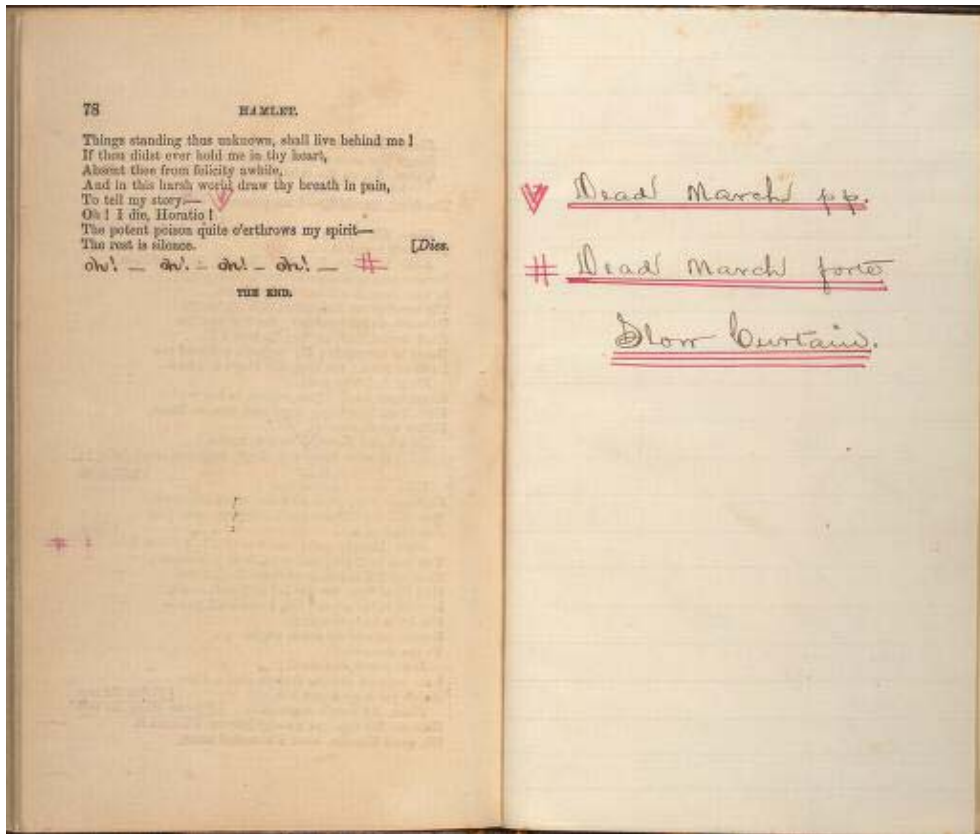 78 HAMLET.
Things standing thus unknown, shall live behind me!
If thou didst ever hold me in thy heart,
Absent thee from felicity awhile,
And in this harsh world draw thy breath in pain,
To tell my story:—
Oh! I die, Horatio!
The potent poison quite o'erthrows my spirit—
The rest is silence. [Dies.
oh! — oh! - oh! - oh! — #
THE END.
Dead March pp.
# Dead March forte
Slow Curtain.